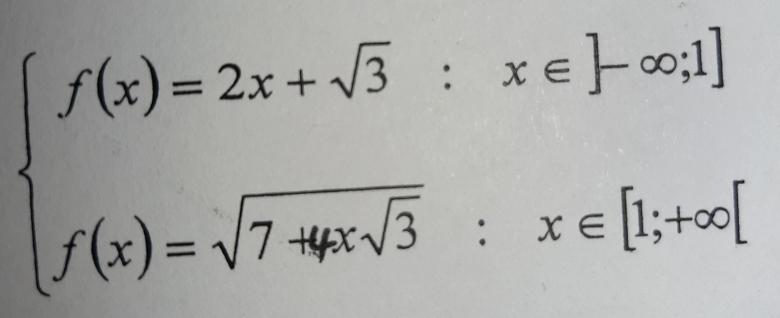 f(x) = 2x + √3 : x ∈ ]−∞;1]
f(x) = √(7 +4x√3) : x ∈ [1;+∞[